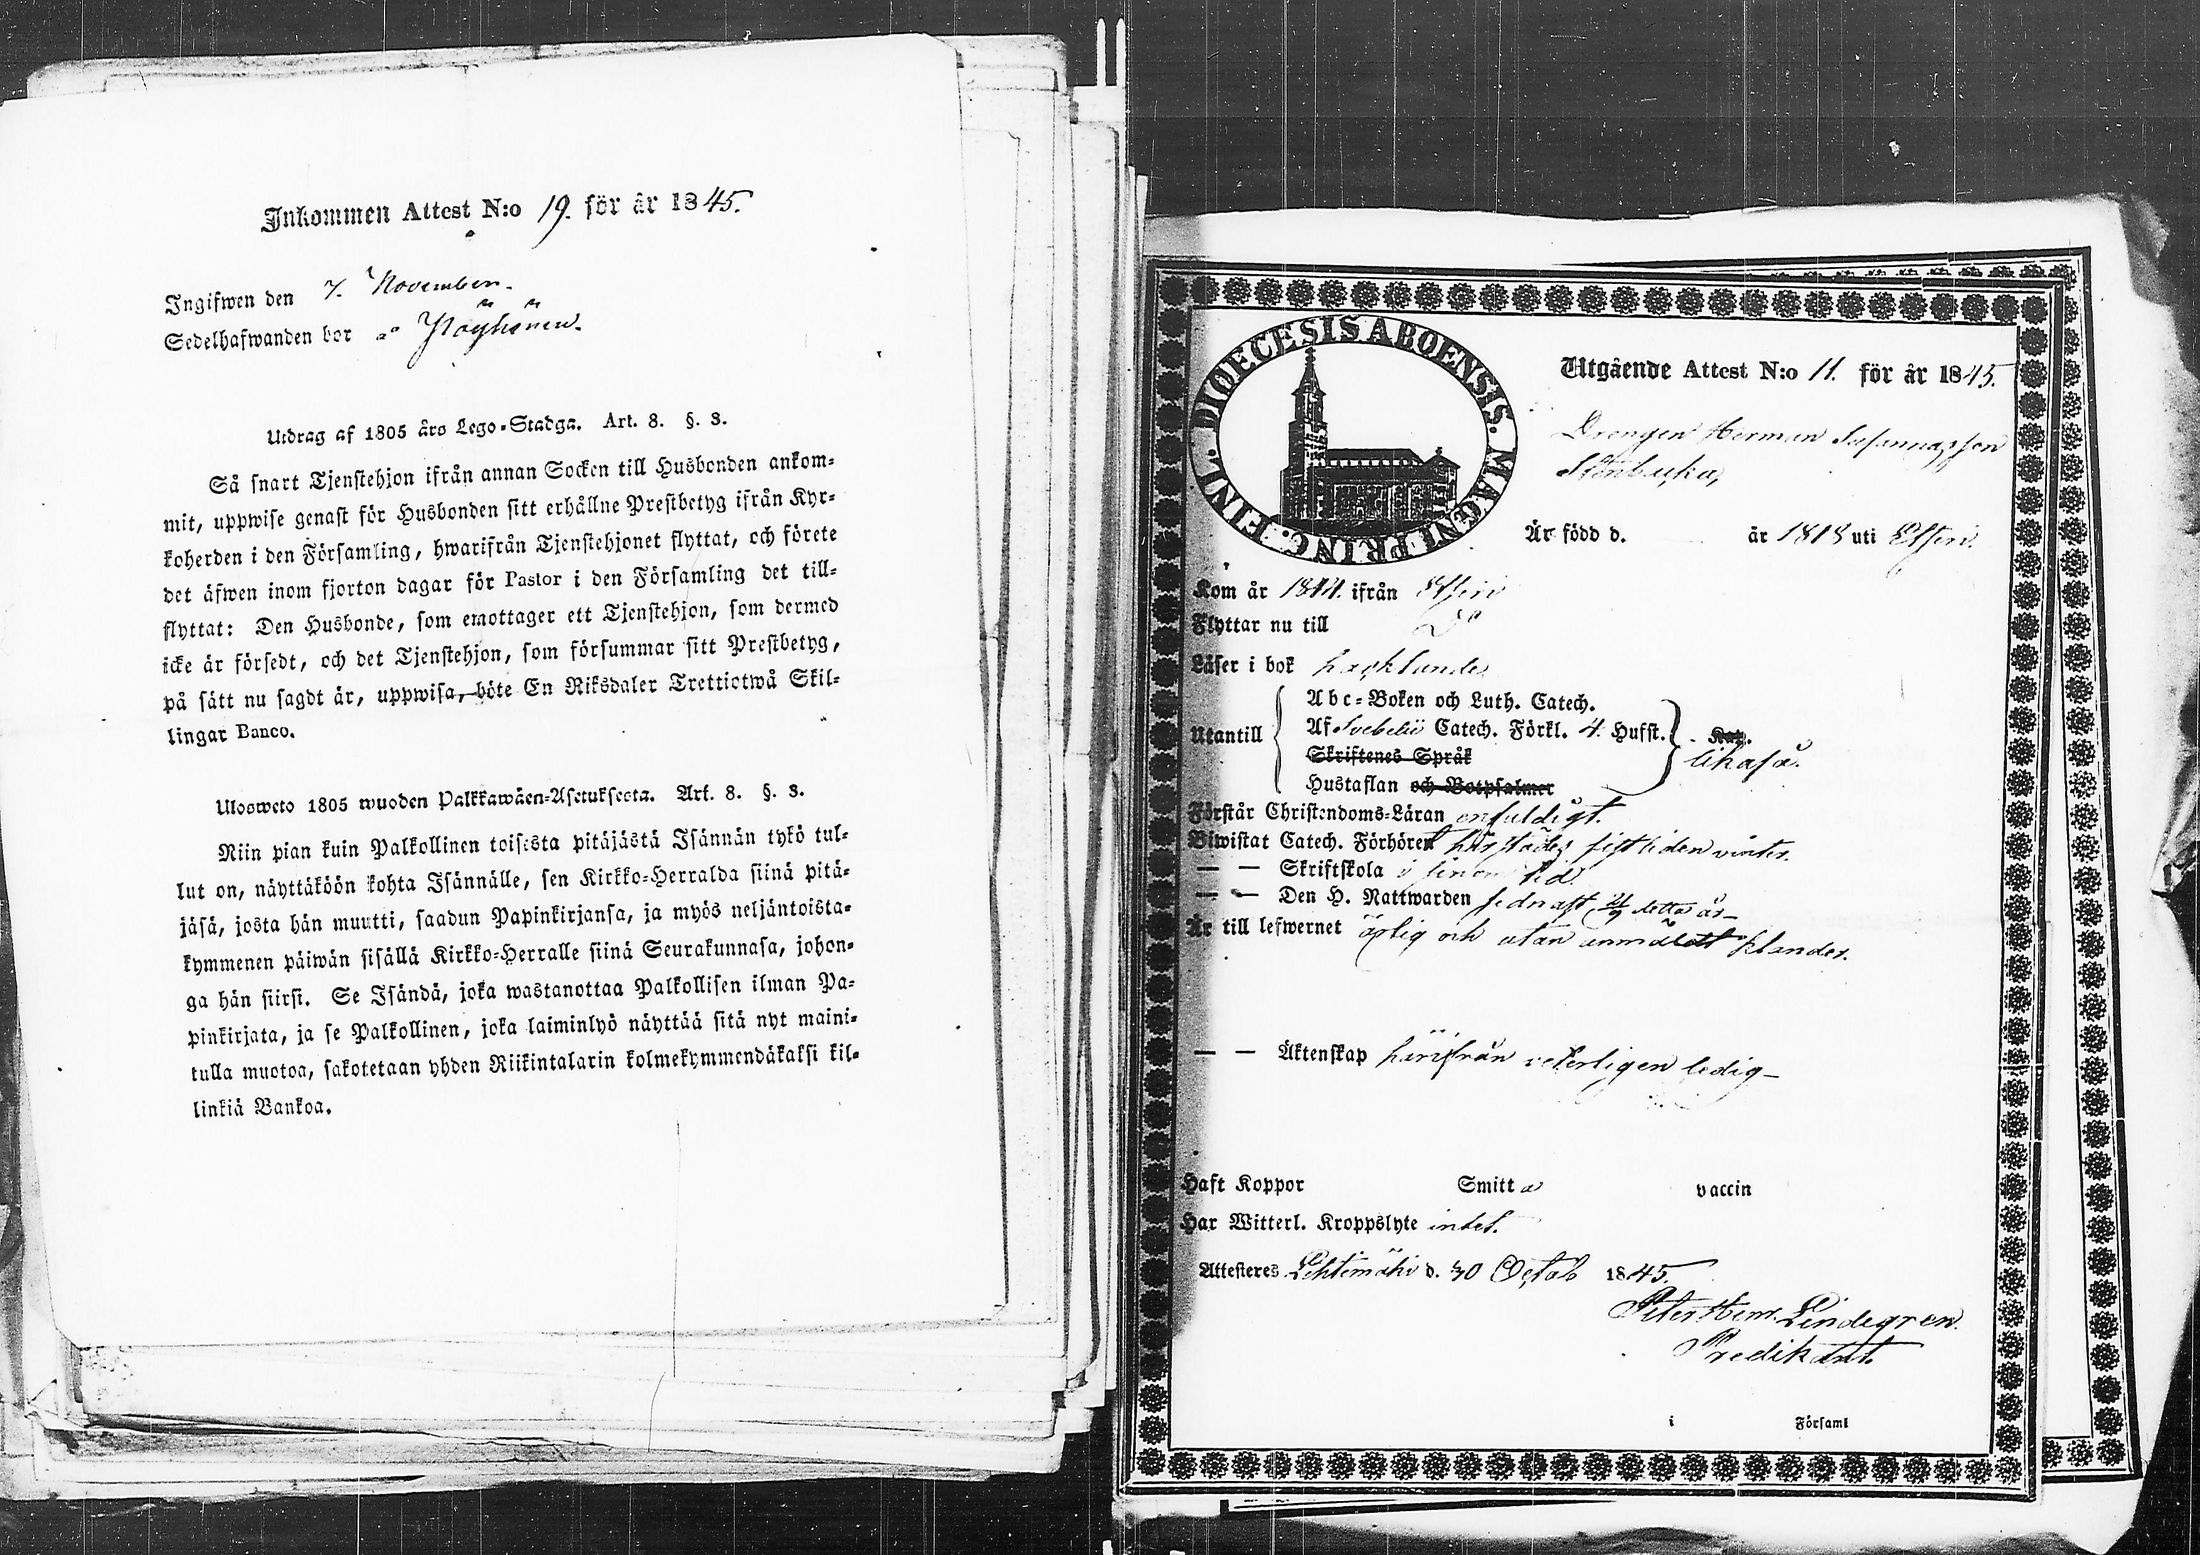 Inkommen Attest N:o 19. för år 1845.
Ingifwen den 7. November.
Sedelhafwanden bor å
Utdrag af 1805 års Lego-Stadga. Art. 8. §. 3.
Så snart Tjenstehjon ifrån annan Socken till Husbonden ankom-
mit, uppwise genast för Husbonden sitt erhållne Prestbetyg ifrån Kyr-
koherden i den Församling, hwarifrån Tjenstehjonet flyttat, och förete
det äfwen inom fjorton dagar för Pastor i den Församling det till-
flyttat: Den Husbonde, som emottager ett Tjenstehjon, som dermed
icke är försedt, och det Tjenstehjon, som försummar sitt Prestbetyg,
på sätt nu sagdt är, uppwisa, böte En Riksdaler Trettiotwå Skil-
lingar Banco.
Ulosweto 1805 wuoden Palkkawäen-Asetuksesta. Art. 8. §. 3.
Niin pian kuin Palkollinen toisesta pitäjästä Isännän tykö tul-
lut on, näyttäköön kohta Isännälle, sen Kirkko-Herralda siinä pitä-
jäsä, josta hän muutti, saadun Papinkirjansa, ja myös neljäntoista-
kymmenen päiwän sisällä Kirkko-Herralle siinä Seurakunnasa, johon-
ga hän siirsi. Se Isändä, joka wastanottaa Palkollisen ilman Pa-
pinkirjata, ja se Palkollinen, joka laiminlyö näyttää sitä nyt maini-
tulla muotoa, sakotetaan yhden Riikintalarin kolmekymmendäkaksi kil-
linkiä Bankoa.
DIOECESIS ABOENSIS. MAGNI PRINC. FINL.
Utgående Attest N:o 11. för år 1845.
Drengen Herman Susannasson
Stenbacka,
Är född d. år 1818 uti Etseri.
Kom år 1844 ifrån Etseri
Flyttar nu till Do
Läser i bok hasklande
Utantill
Abc-Boken och Luth. Catech.
Af Svebelii Catech. Förkl. 4. Hufst.
Skriftenes Språk
Hustaflan och Botpsalmer
likaså.
Förstår Christendoms-Läran enfuldigt.
Biwistat Catech. Förhören härstädes sistliden vinter.
— — Skriftskola i sinom tid.
— — Den H. Nattwarden sednast detta år
Är till lefwernet ärlig och utan anmäldt klander.
— — Äktenskap härifrån veterligen ledig
Haft Koppor Smitta vaccin
Har Witterl. Kroppslyte intet.
Attesteres Lehtimäki d. 30 Octob 1845.
Peter Herm. Lindegren.
Predikant.
i Församl